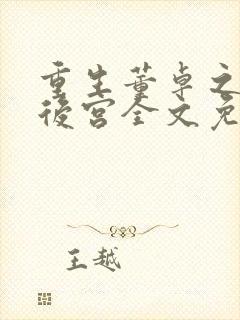 重生董卓之
後宮全文免
王越